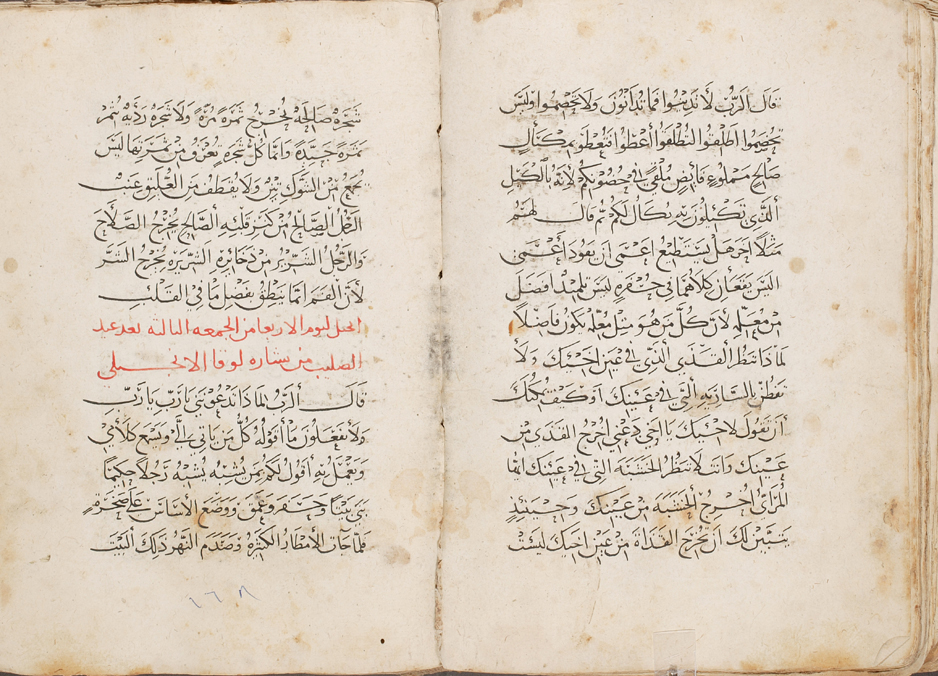 قَال الرَّبُّ لَا تَدِينُوا فَمَا تُدَانُونَ وَلَا تَخْصِمُوا وَلَيْسَ
تُخْصَمُوا اطْلِقُوا لتُطْلَقُوا أَعْطُوا فَتُعْطَو بِمِكْيَالٍ
صَالحٍ مَمْلُوءٍ فَأَيضٍ مُلْقًي فِي حُضُونِكُم لأَنَّهُ بِالْكَيْلِ
ألَّذِي تَكِيلُونَ بِهِ يُكَال لَكُم ثُم قَال لَهُمُ
مَثَلاً اخَر هَلْ يَسْتَطِيعُ اعْمَى ان يَقُودَ أَعْمَى
الَيْسَ يَقَعَانِ كِلَاهُمَا فِي حُفْرَةٍ لَيْسَ تِلْمِيذ افضَل
مِن مُعَلِّمِهِ لأَنَّ كُلَّ مَن هُوَ مِثْل مُعَلِّمِهِ يَكُون فَاضِلاً
لِمَاذَا تَنظُر القَذَي الَّذِي فِي عَيْن اخِيْكَ وَلَا
تَفْطُن بِالسَّارِيَةِ الَّتِي فِي عَيْنِكَ اوْ كَيْفَ يُمكِنُكَ
أَن تَقُولَ لِاخِيْكَ يَا اخِي دَعْنِي اخْرِجُ القَذَي مِن
عَيْنِكَ وَانتَ لَا تَنظُرُ الخَشَبَةَ الَّتِي فِي عَيْنِكَ ايّهَا
المُرَآئِي اخْرِجُ الْخَشَبَه مِن عَيْنِكَ وَحِيْنَئِذٍ
يَتَبَيَّن لَكَ أَن تُخْرِجَ القَذَاةَ مِن عَيْنِ اخِيكَ لَيْسَتْ
شَجَرَة صَالِحَة تُخْرِجُ ثَمَرَةً مُرَّةً وَلَا شَجَرَة رَدِيَّة تُثْمِر
ثَمَرَةً جَيِّدَةً وَانَّمَا كُلُّ شَجَرَةٍ تُعْرَفُ مِن ثَمَرَتِهَا لَيْسَ
يُجْمَعُ مِنَ الشَّوْكِ تِيْن وَلَا يُقْطَف مِنَ العُلَّيْقِ عِنَب
الرَّجُل الصَّالِح مِنْ كَنزِ قَلْبِهِ الصَّالِحِ يُخْرِجُ الصَّلَاحَ
وَالرَّجُل الشِّرِّيْر مِنْ ذَخَائِرِهِ الشِّرِّيْرَةِ يُخْرِجُ الشَّرَّ
لأَنَّ الفَمَ انَّمَا يَنْطِقُ بفَضْلِ مَا فِي القَلْبِ
انجيل ليوم الاربعا من الجمعه الثالثه بعد عيد
الصليب من بشاره لوقا الانجيلي
قَالَ ألرَّبُ لِمَا ذَا تَدْعُوْنَنِي يَا رَبِّ يَا رَبِّ
وَلَا تَفْعَلُونَ مَا أَقُولهُ كُلُّ مَن يَاتِي إِلَيَّ وَيَسْمَع كَلَامِي
وَيَعْمَلُ بِهِ أقُولُ لَكُم بِمَن يُشْبِهُ يُشْبِهُ رَجُلاً حَكِيْمًا
بَنَى بَيْتًا وَحَفَر وَعَمَّقَ وَوَضَع الأَسَاسَ عَلَى صَخْرَةٍ
فَلَمَّا جَآت الأَمْطَارُ الكَثِيْرَةُ وَصَدَمَ النَّهْر ذَلِكَ البَيْتَ
١٦٨